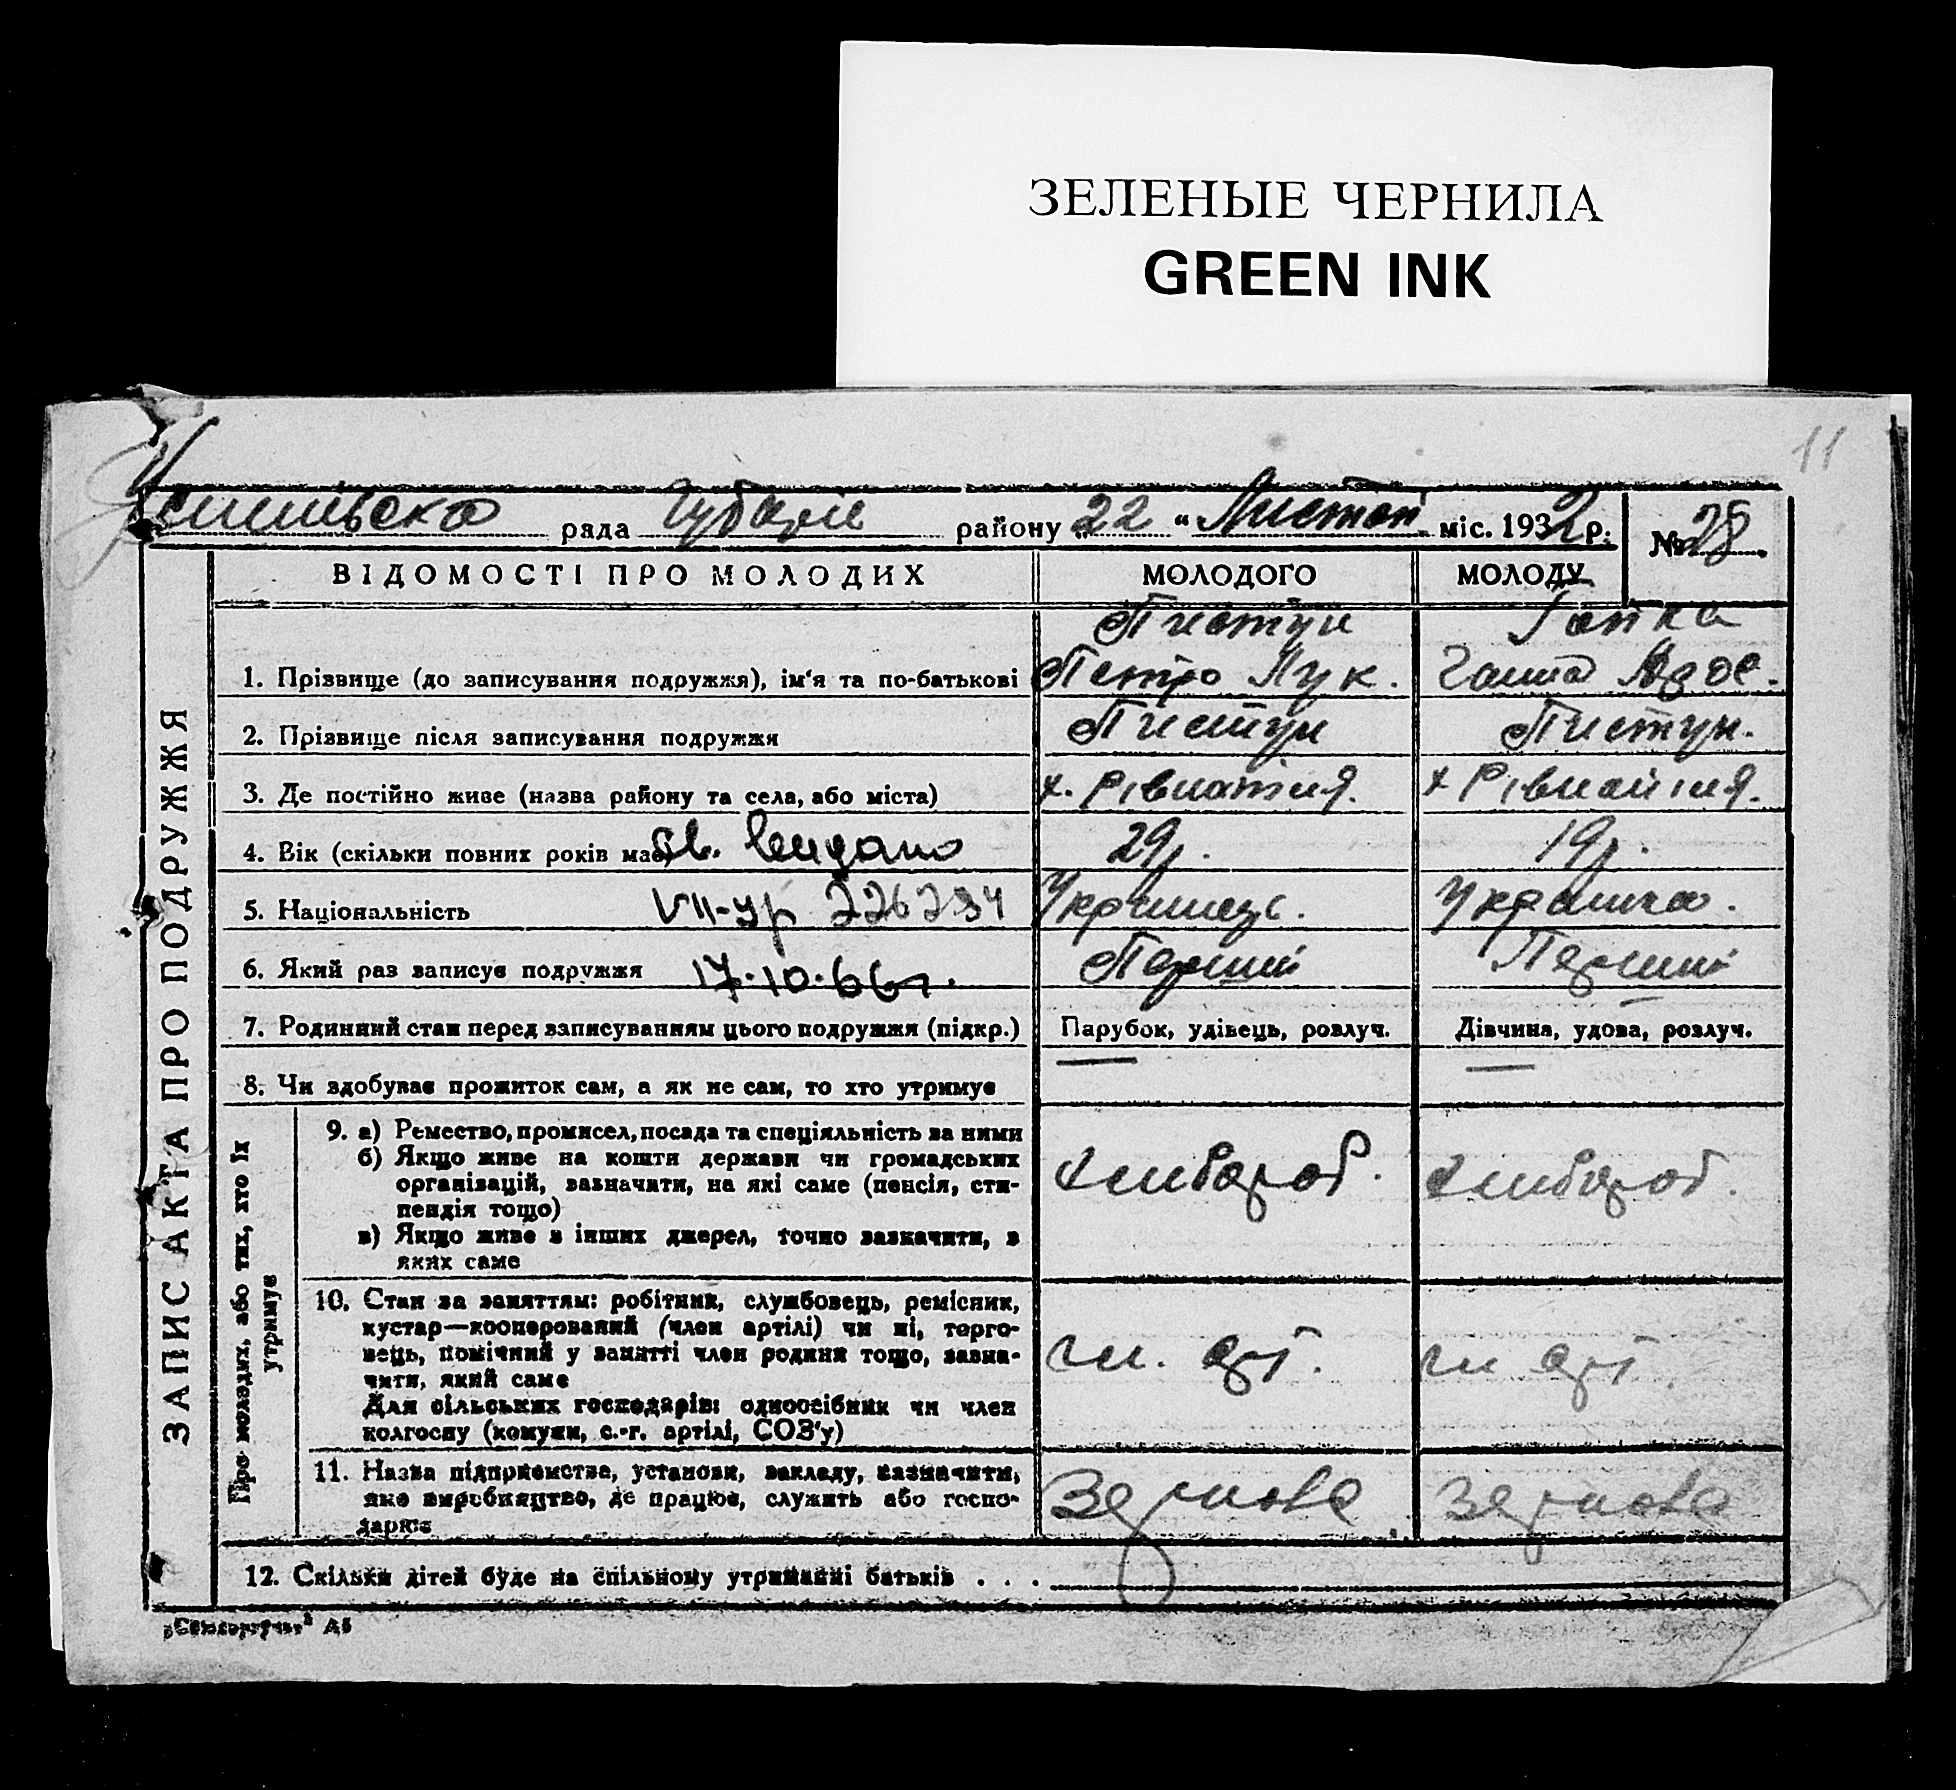 ЗЕЛЕНЫЕ ЧЕРНИЛА
GREEN INK
11
рада району "22" міс. 1932 р. № 28
ВІДОМОСТІ ПРО МОЛОДИХ МОЛОДОГО МОЛОДУ
ЗАПИС АКТА ПРО ПОДРУЖЖЯ
Пистун
1. Прізвище (до записування подружжя), ім'я та по-батькові Петро Лук. Ганна
2. Прізвище після записування подружжя Пистун Пистун.
3. Де постійно живе (назва району та села, або міста) х. х
4. Вік (скільки повних років має) Св. видано 29 р. 19 р.
5. Національність VII-ур 226294 Українець. Українка.
6. Який раз записує подружжя 17.10.66 г. Перший Перший
7. Родинний стан перед записуванням цього подружжя (підкр.) Парубок, удівець, розлуч. Дівчина, удова, розлуч.
8. Чи здобуває прожиток сам, а як не сам, то хто утримує
Про молодих, або тих, хто їх утримує
9. а) Ремество, промисел, посада та спеціяльність за ними
б) Якщо живе на кошти держави чи громадських
організацій, зазначити, на які саме (пенсія, сти-
пендія тощо)
хлібороб. хлібороб.
в) Якщо живе з інших джерел, точно зазначити, з
яких саме
10. Стан за заняттям: робітник, службовець, ремісник,
кустар—кооперований (член артілі) чи ні, торго-
вець, помічний у занятті член родини тощо, зазна-
чити, який саме
чл. арт. чл арт.
Для сільських господарів: одноосібник чи член
колгоспу (комуни, с.-г. артілі, СОЗ'у)
11. Назва підприємства, установи, закладу, зазначити,
яке виробництво, де працює, служить або госпо-
дарює
Зернова Зернова
12. Скільки дітей буде на спільному утриманні батьків . . .